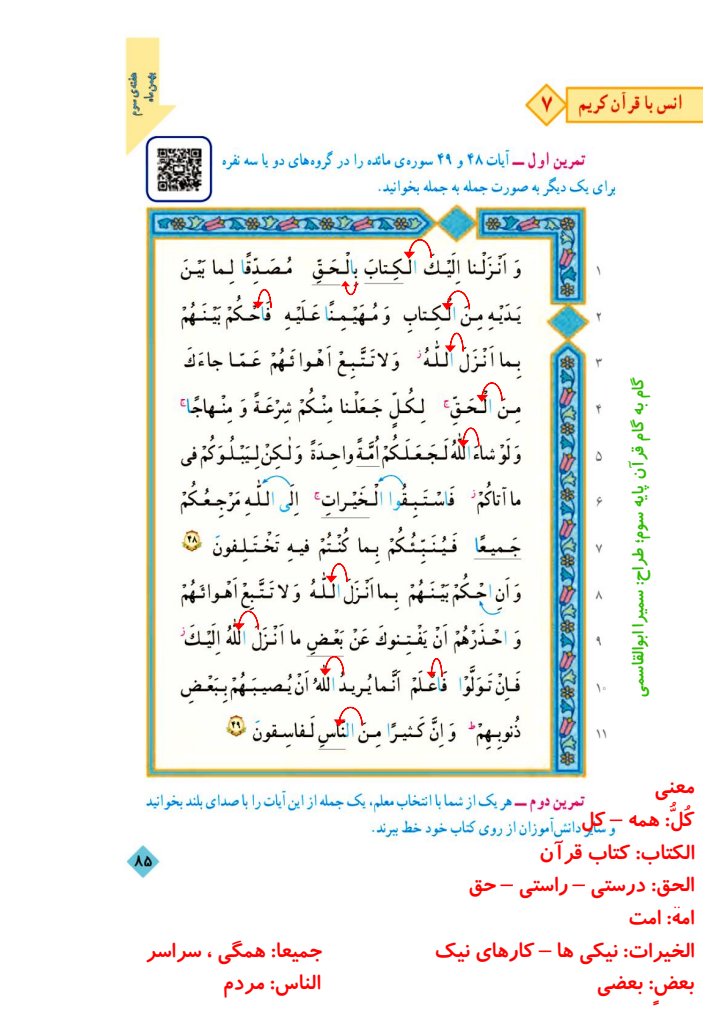 هفته‌ی سوم
بهمن ماه
انس با قرآن کریم ۷
تمرین اول ــ آیات ۴۸ و ۴۹ سوره‌ی مائده را در گروه‌های دو یا سه نفره
برای یک دیگر به صورت جمله به جمله بخوانید.
۱ وَ اَنْزَلْنا اِلَيْكَ الْكِتابَ بِالْحَقِّ مُصَدِّقًا لِما بَيْنَ
۲ يَدَيْهِ مِنَ الْكِتابِ وَ مُهَيْمِنًا عَلَيْهِ فَاحْكُمْ بَيْنَهُمْ
۳ بِما اَنْزَلَ اللّٰهُ ز وَلا تَتَّبِعْ اَهْوائَهُمْ عَمّا جاءَكَ
۴ مِنَ الْحَقِّ ج لِكُلٍّ جَعَلْنا مِنْكُمْ شِرْعَةً وَ مِنْهاجًا ج
۵ وَلَوْ شاءَ اللّٰهُ لَجَعَلَكُمْ اُمَّةً واحِدَةً وَلٰكِنْ لِيَبْلُوَكُمْ فى
۶ ما آتاكُمْ ز فَاسْتَبِقُوا الْخَيْراتِ ج اِلَى اللّٰهِ مَرْجِعُكُمْ
۷ جَميعًا فَيُنَبِّئُكُمْ بِما كُنْتُمْ فيهِ تَخْتَلِفونَ ۴۸
۸ وَ اَنِ احْكُمْ بَيْنَهُمْ بِما اَنْزَلَ اللّٰهُ وَ لا تَتَّبِعْ اَهْوائَهُمْ
۹ وَ احْذَرْهُمْ اَنْ يَفْتِنوكَ عَنْ بَعْضِ ما اَنْزَلَ اللّٰهُ اِلَيْكَ ز
۱۰ فَاِنْ تَوَلَّوْا فَاعْلَمْ اَنَّما يُريدُ اللّٰهُ اَنْ يُصيبَهُمْ بِبَعْضِ
۱۱ ذُنوبِهِمْ ط وَ اِنَّ كَثيرًا مِنَ النّاسِ لَفاسِقونَ ۴۹
گام به گام قرآن پایه سوم؛ طراح: سمیرا ابوالقاسمی
تمرین دوم ــ هر یک از شما با انتخاب معلم، یک جمله از این آیات را با صدای بلند بخوانید
و سایر دانش‌آموزان از روی کتاب خود خط ببرند.
۸۵
معنی
کُلُّ: همه – کل
الکتاب: کتاب قرآن
الحق: درستی – راستی – حق
امة: امت
الخیرات: نیکی ها – کارهای نیک
بعضٍ: بعضی
جمیعا: همگی ، سراسر
الناس: مردم